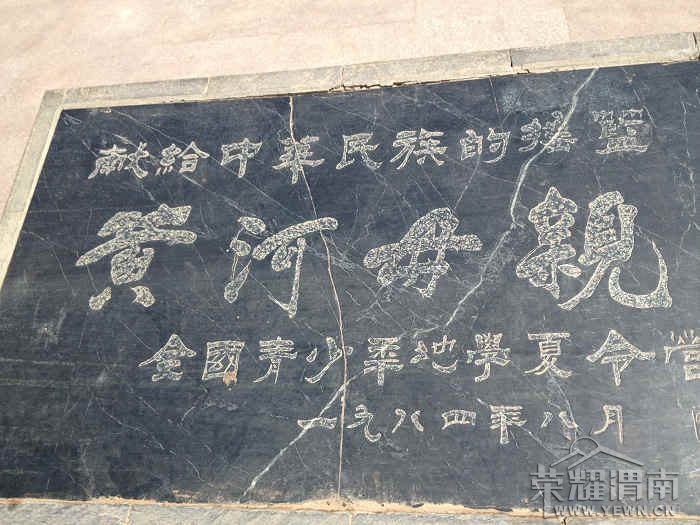 献给中华民族的摇篮
黄河母親
全國青少年地學夏令营
一九八四年八月
荣耀渭南
WWW.YEWN.CN